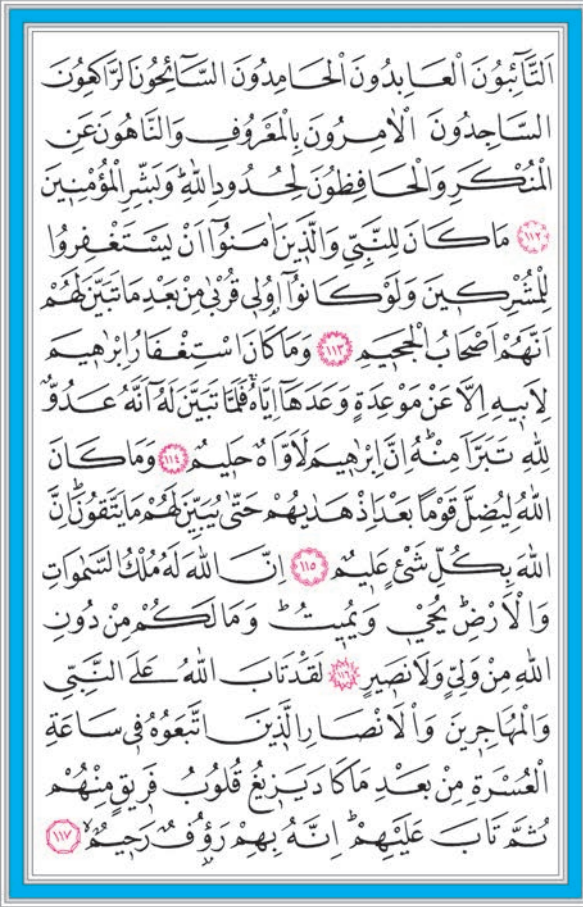 اَلتَّٓائِبُونَ الْعَابِدُونَ الْحَامِدُونَ السَّٓائِحُونَ الرَّاكِعُونَ
السَّاجِدُونَ الْاٰمِرُونَ بِالْمَعْرُوفِ وَالنَّاهُونَ عَنِ
الْمُنْكَرِ وَالْحَافِظُونَ لِحُدُودِ اللّٰهِ وَبَشِّرِ الْمُؤْمِن۪ينَ
﴿١١٢﴾ مَا كَانَ لِلنَّبِيِّ وَالَّذ۪ينَ اٰمَنُٓوا اَنْ يَسْتَغْفِرُوا
لِلْمُشْرِك۪ينَ وَلَوْ كَانُٓوا اُو۬ل۪ي قُرْبٰى مِنْ بَعْدِ مَا تَبَيَّنَ لَهُمْ
اَنَّهُمْ اَصْحَابُ الْجَح۪يمِ ﴿١١٣﴾ وَمَا كَانَ اسْتِغْفَارُ اِبْرٰه۪يمَ
لِاَب۪يهِ اِلَّا عَنْ مَوْعِدَةٍ وَعَدَهَٓا اِيَّاهُۚ فَلَمَّا تَبَيَّنَ لَهُٓ اَنَّهُ عَدُوٌّ
لِلّٰهِ تَبَرَّاَ مِنْهُۜ اِنَّ اِبْرٰه۪يمَ لَاَوَّاهٌ حَل۪يمٌ ﴿١١٤﴾ وَمَا كَانَ
اللّٰهُ لِيُضِلَّ قَوْمًا بَعْدَ اِذْ هَدٰيهُمْ حَتّٰى يُبَيِّنَ لَهُمْ مَا يَتَّقُونَۜ اِنَّ
اللّٰهَ بِكُلِّ شَيْءٍ عَل۪يمٌ ﴿١١٥﴾ اِنَّ اللّٰهَ لَهُ مُلْكُ السَّمٰوَاتِ
وَالْاَرْضِۜ يُحْي۪ وَيُم۪يتُۜ وَمَا لَكُمْ مِنْ دُونِ
اللّٰهِ مِنْ وَلِيٍّ وَلَا نَص۪يرٍ ﴿١١٦﴾ لَقَدْ تَابَ اللّٰهُ عَلَى النَّبِيِّ
وَالْمُهَاجِر۪ينَ وَالْاَنْصَارِ الَّذ۪ينَ اتَّبَعُوهُ ف۪ي سَاعَةِ
الْعُسْرَةِ مِنْ بَعْدِ مَا كَادَ يَز۪يغُ قُلُوبُ فَر۪يقٍ مِنْهُمْ
ثُمَّ تَابَ عَلَيْهِمْۜ اِنَّهُ بِهِمْ رَؤُ۫فٌ رَح۪يمٌۙ ﴿١١٧﴾